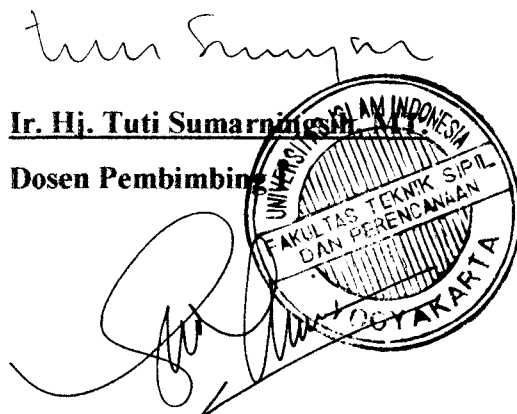 Ir. Hj. Tuti Sumarningsih, MT.
Dosen Pembimbing
UNIVERSITAS ISLAM INDONESIA
FAKULTAS TEKNIK SIPIL
DAN PERENCANAAN
YOGYAKARTA